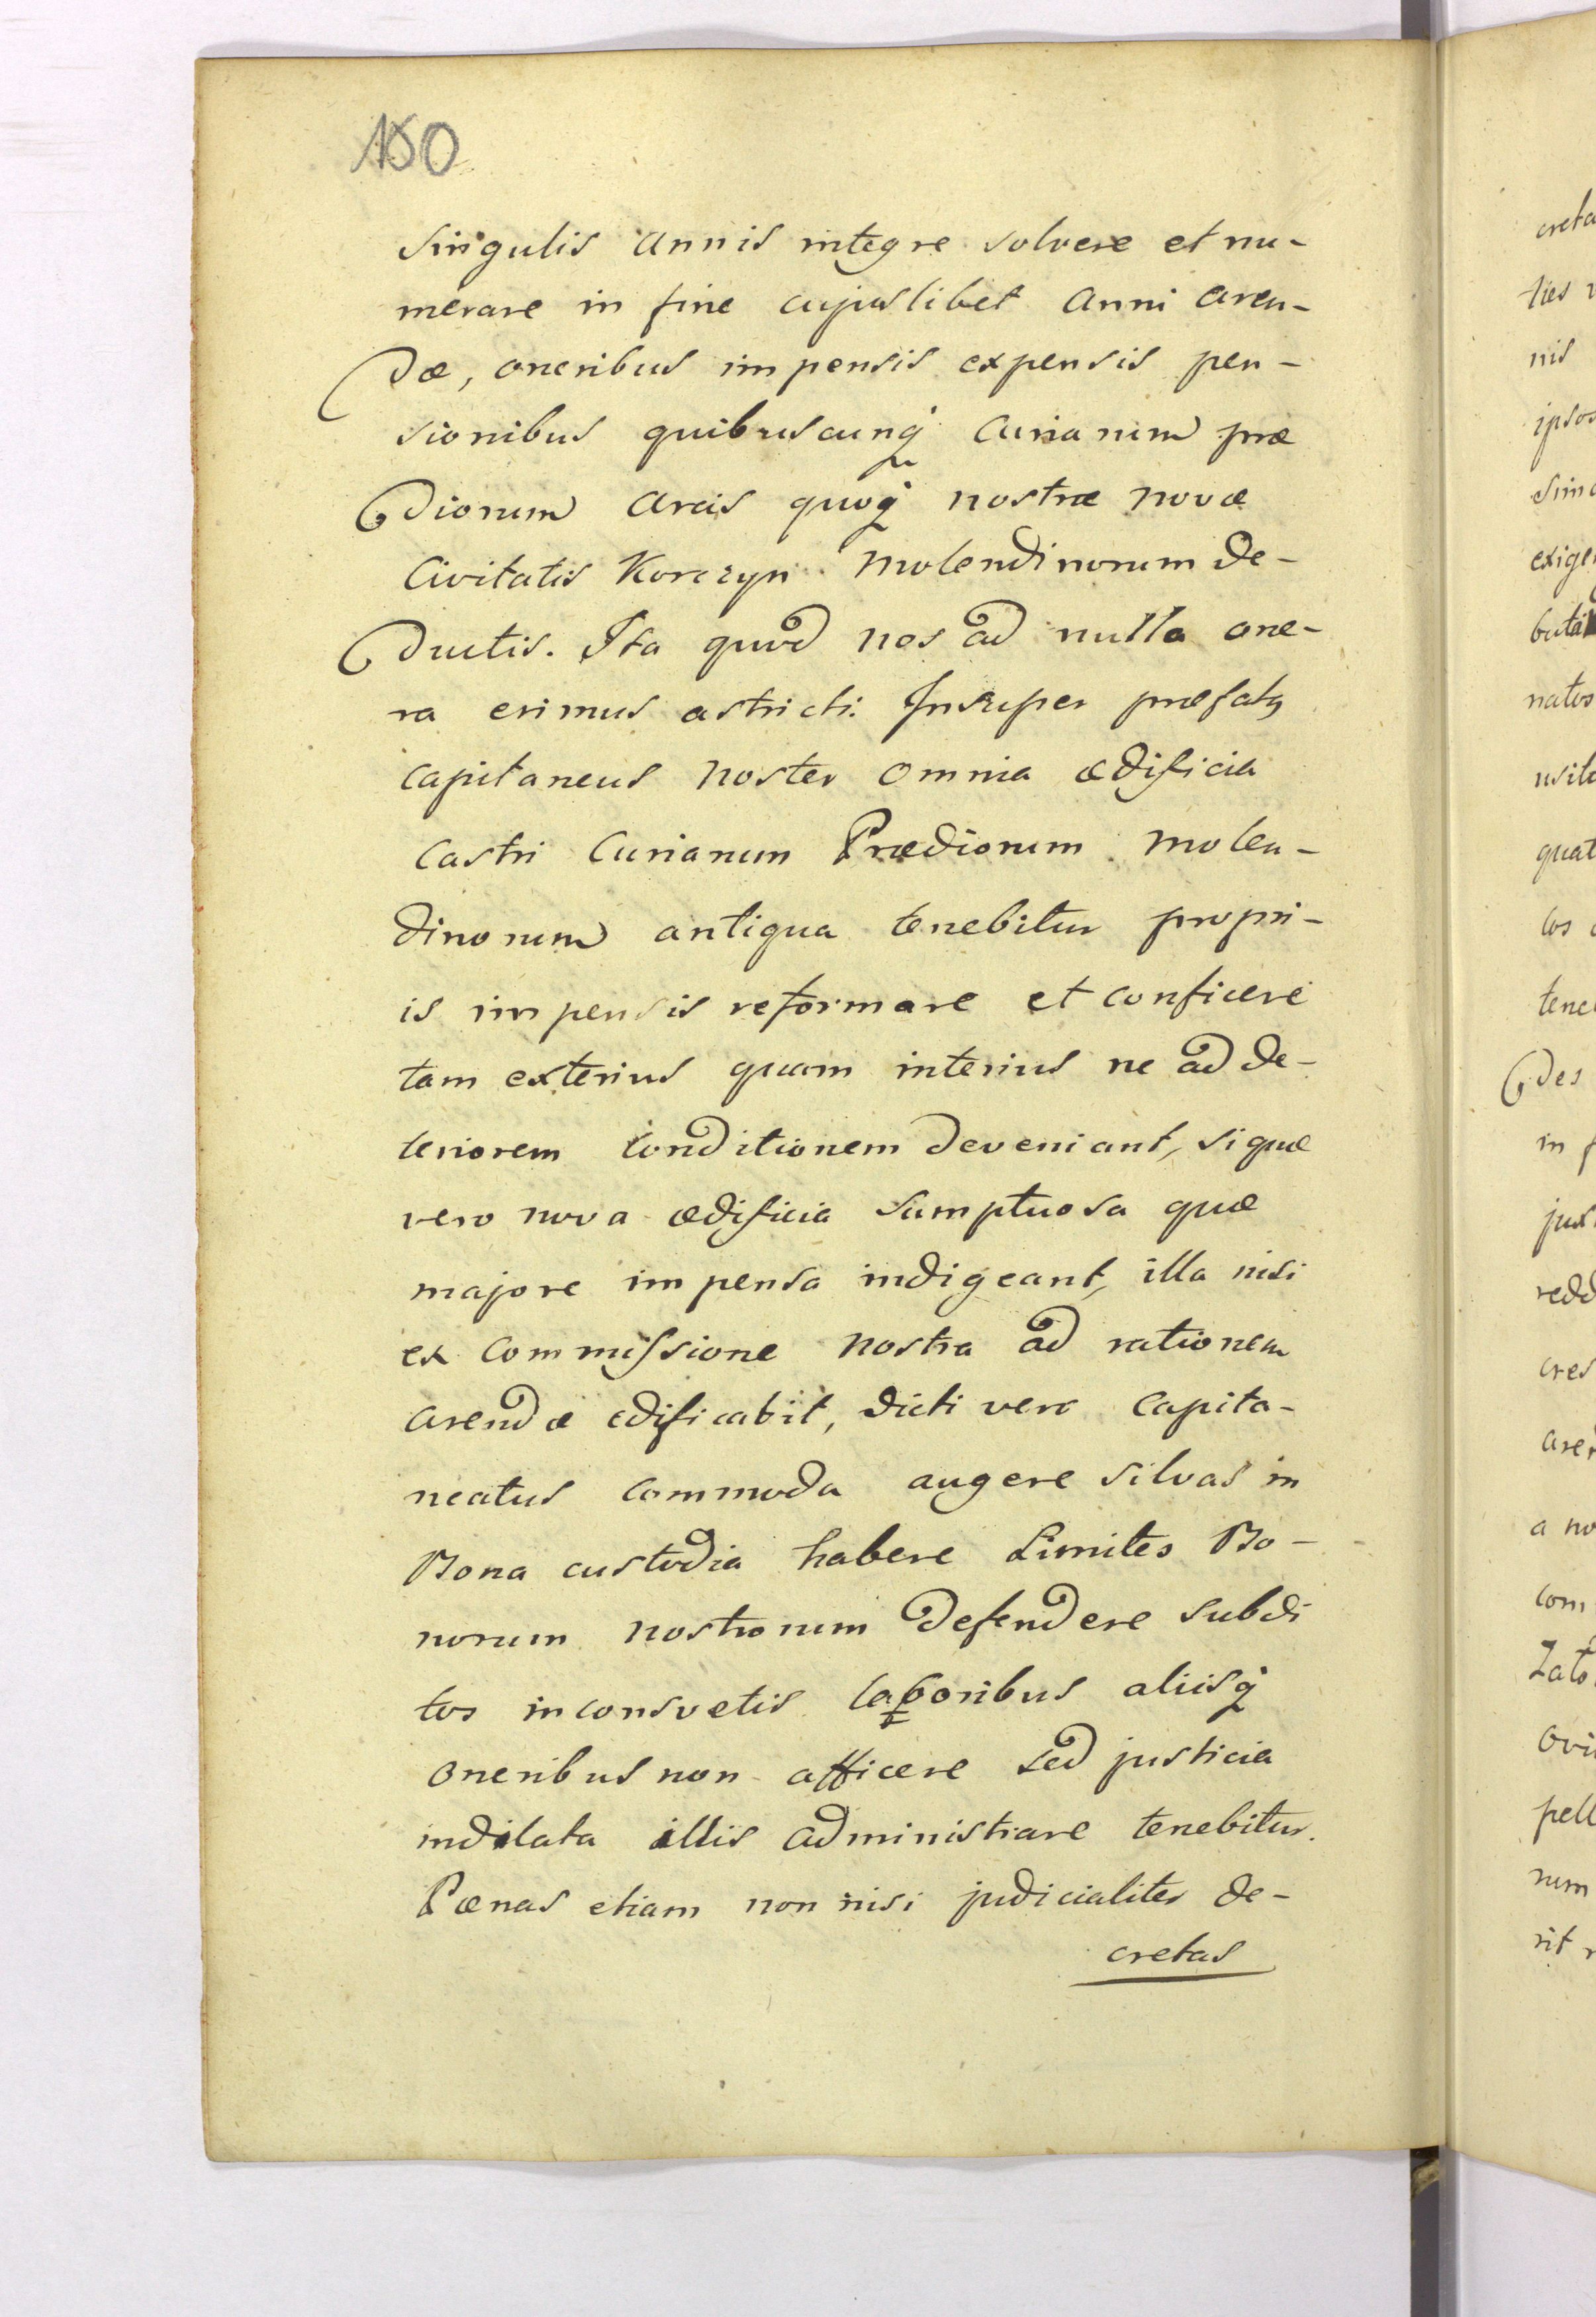 150
singulis annis integre solvere et nu-
merare in fine cujuslibet anni aren-
dæ, oneribus impensis expensis pen-
sionibus quibuscunq curiarum præ
diorum arcis quoq nostræ novæ
Civitatis Korczyn Molendinorum de-
ductis. Ita quod nos ad nulla one-
ra erimus astricti. Insuper præfatq
capitaneus noster omnia ædificia
castri Curiarum Prædiorum molen-
dinorum antiqua tenebitur propri-
is impensis reformare et conficere
tam exterius quam interius ne ad de-
teriorem conditionem deveniant, si quæ
vero nova ædificia sumptuosa quæ
majore impensa indigeant, illa nisi
ex commissione nostra ad rationem
arendæ edificabit, dicti vero capita-
neatus commoda augere silvas in
Bona custodia habere Limites Bo-
norum nostrorum defendere subdi
tos inconsvetis laboribus aliisq
oneribus non afficere sed justicia
indilata illis administrare tenebitur.
Pænas etiam non nisi judicialiter de-
cretas
ties
nis
exige
natos
tene
des
in
a no
com
pell
num